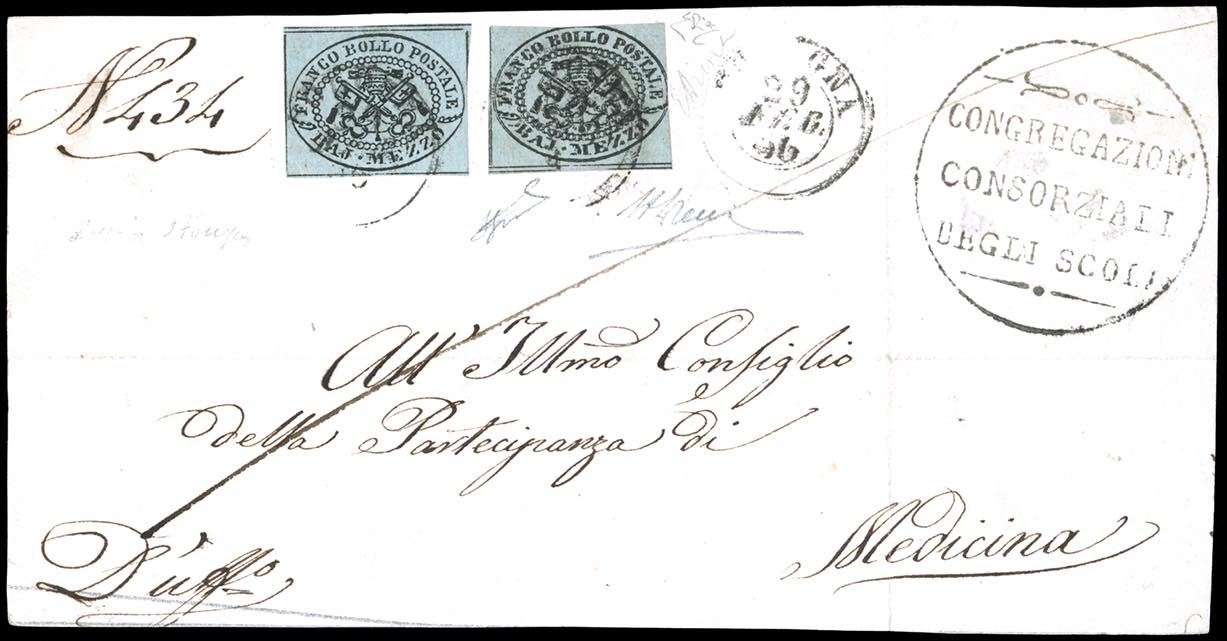 N. 434
FRANCO BOLLO POSTALE
BAJ. MEZZO
FRANCO BOLLO POSTALE
BAJ. MEZZO
GNA
29
FEB.
56
CONGREGAZIONI
CONSORZIALI
DEGLI SCOLI
All' Illmo Consiglio
della Partecipanza di
Medicina
D'uffo